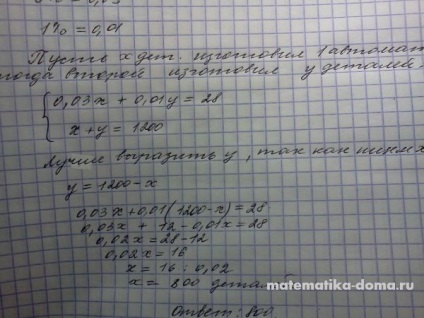 1% = 0,01
Пусть x дет. изготовил 1 автомат
тогда второй изготовил y деталей.
0,03x + 0,01y = 28
x + y = 1200
Лучше выразить y, так как
y = 1200 - x
0,03x + 0,01(1200 - x) = 28
0,03x + 12 - 0,01x = 28
0,02x = 28 - 12
0,02x = 16
x = 16 : 0,02
x = 800 деталей
matematika-doma.ru
Ответ: 800